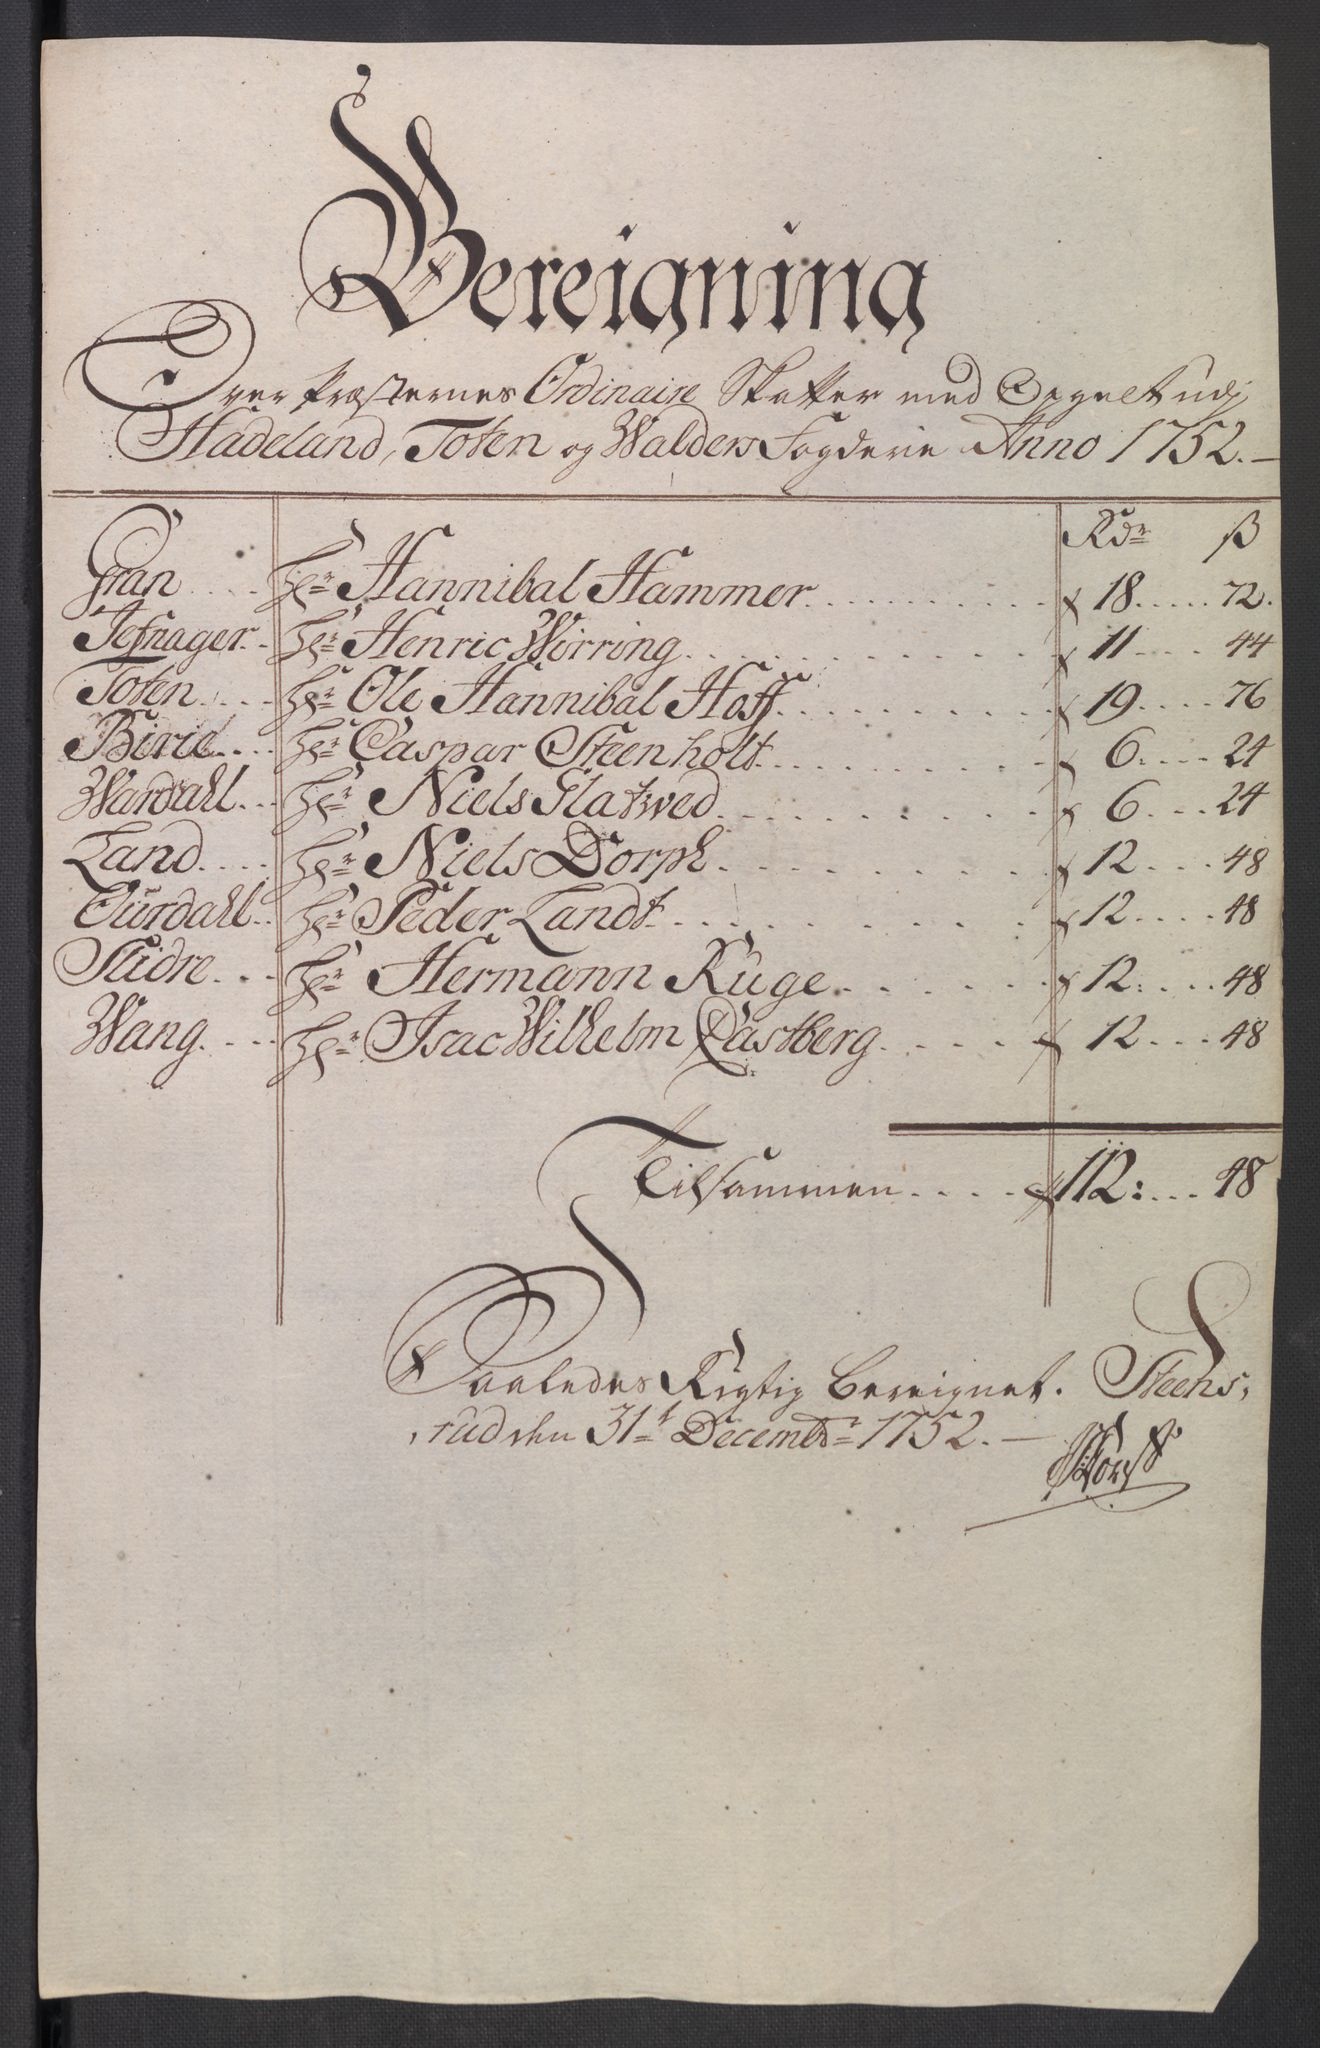 Bereigning
Over Præsternes Ordinaire Skatter med Opgelt udj
Hadeland, Toten og Walders Fogderie Anno 1752. —
Rdr ß
Gran .... Hr Hannibal Hammer .......... 18 ..... 72.
Jefnager .. Hr Henric Wirring .......... 11 .... 44
Toten .... Hr Ole Hannibal Hoff .......... 19 .... 76
Birid .... Hr Caspar Steenholt .......... 6 .... 24
Wardahl ... Hr Niels Flatwed .......... 6 ... 24
Land .... Hr Niels Dorph .......... 12 ... 48
Ourdahl .. Hr Peder Landt .......... 12 .... 48
Slidre ... Hr Hermann Ruge ...... 12 .... 48
Wang .... Hr Isac Wilhelm Castberg ..... 12 ... 48
Tilsammen .... 112: ... 48
Saaledes Rigtig bereignet. Steens,
rud den 31t Decembr 1752. —